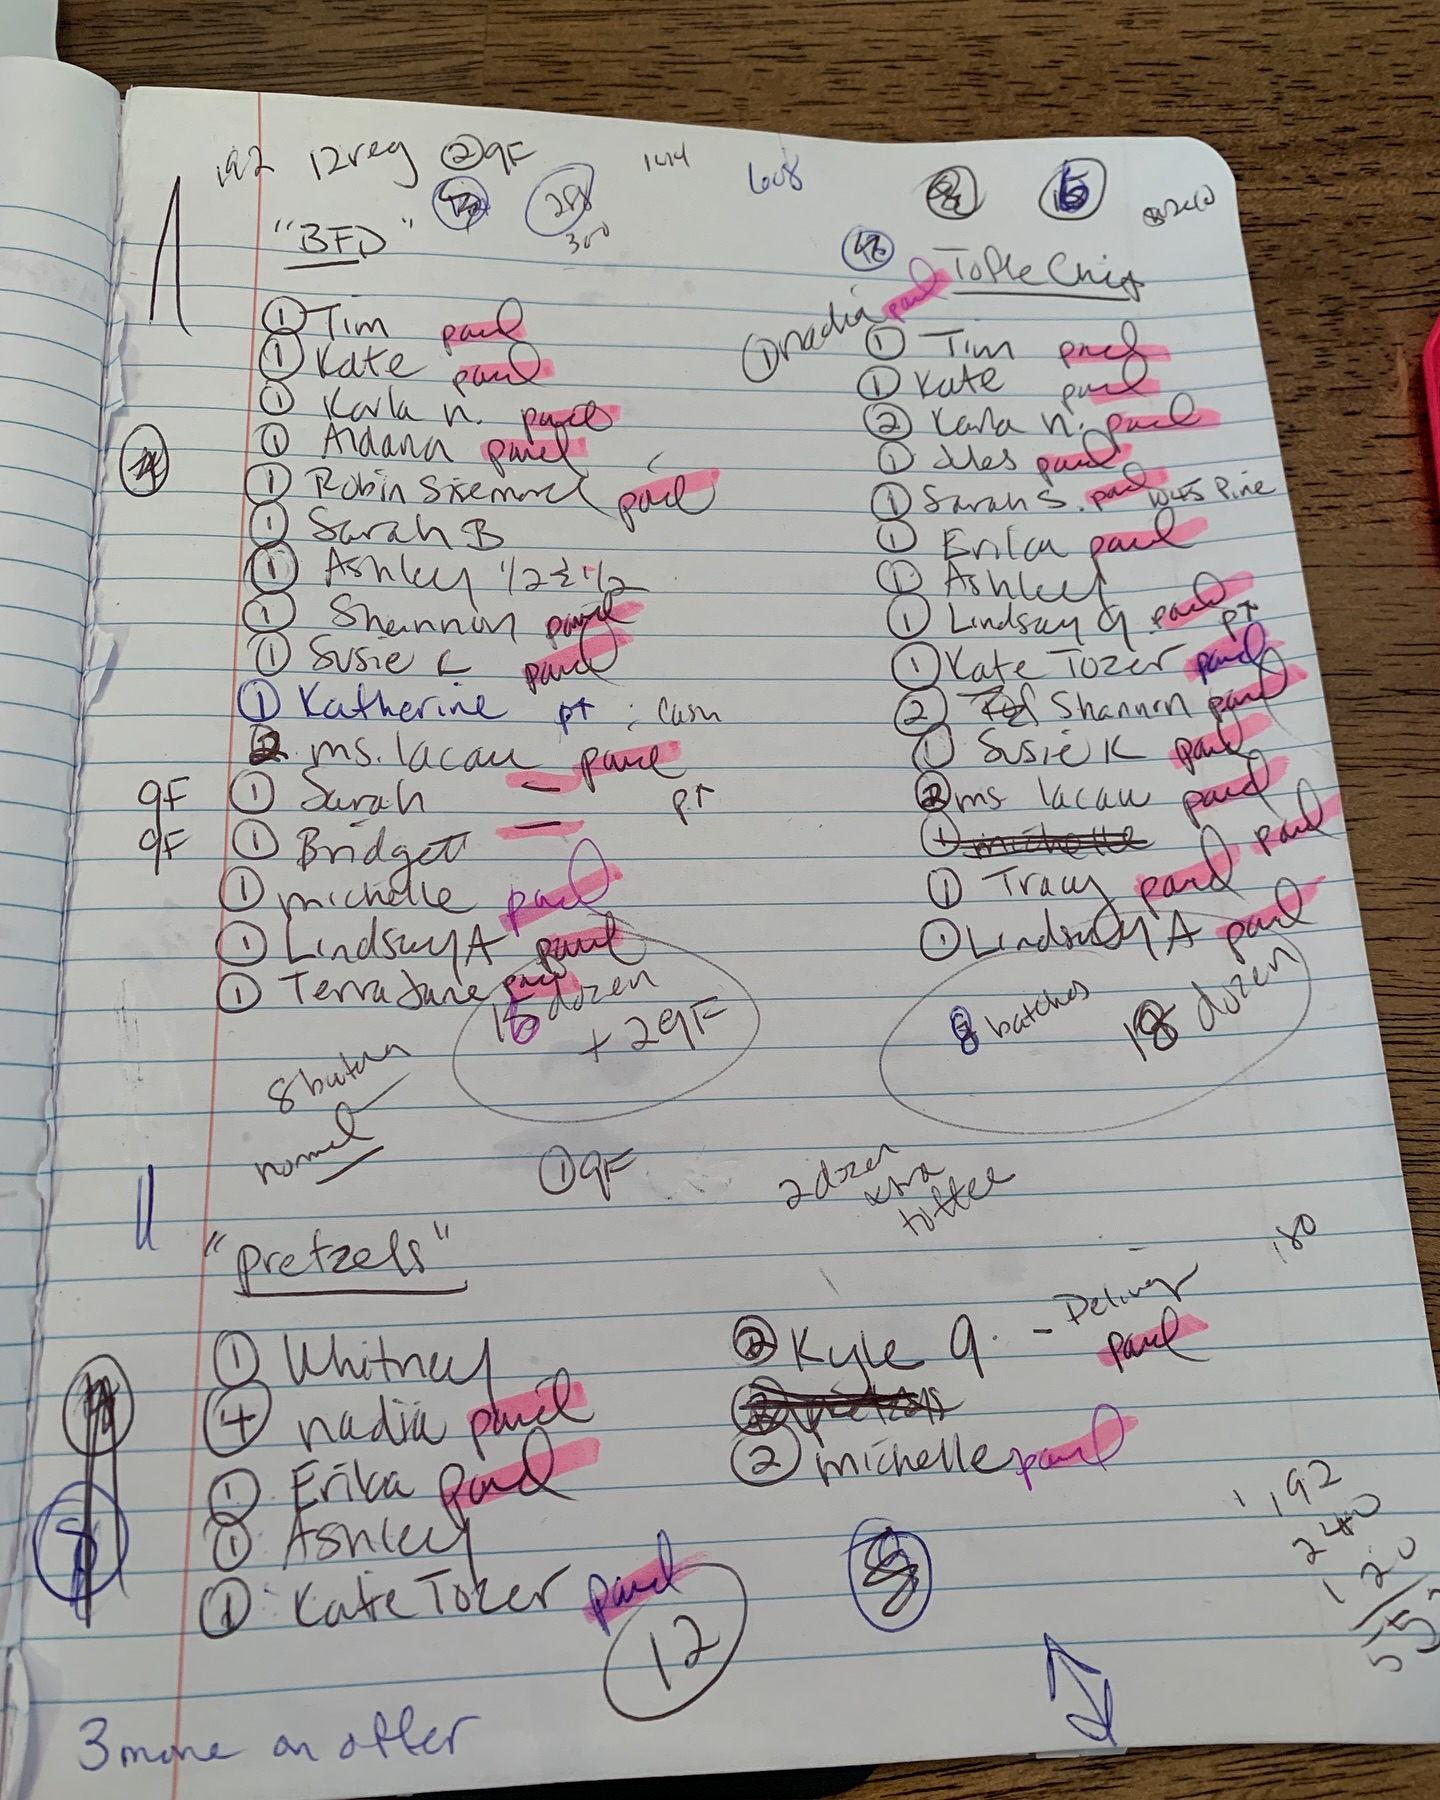 192 12reg ② gF 1414 608
288 300 240
"BFD"
① Tim paid
① Kate paid
① Karla n. paid
① Aidana paid
① Robin paid
① Sarah B
① Ashley 1/2 & 1/2
① Shannon paid
① Susie K paid
① Katherine pt : Cash
2 ms. lacau paid
gF ① Sarah — pt
gF ① Bridgett —
① michelle paid
① Lindsay A paid
① Terra Jane paid
16 dozen
+ 2 gF
8 batches
normal
① gF
Toffee Chip
① nadia paid
① Tim paid
① Kate paid
② Karla n. paid
① paid
① Sarah S. paid 1045 Pine
① Erika paid
① Ashley
① Lindsay g paid pt
① Kate Tozer paid
② Shannon paid
① Susie K paid
② ms lacau paid
① michelle paid
① Tracy paid
① Lindsay A paid
8 batches 18 dozen
2 dozen
xtra
toffee
180
"pretzels"
① Whitney
④ nadia paid
① Erika paid
① Ashley
① Kate Tozer paid
8
12
② Kyle g. - Delivery
paid
② michelle paid
192
240
120
552
3 more an offer